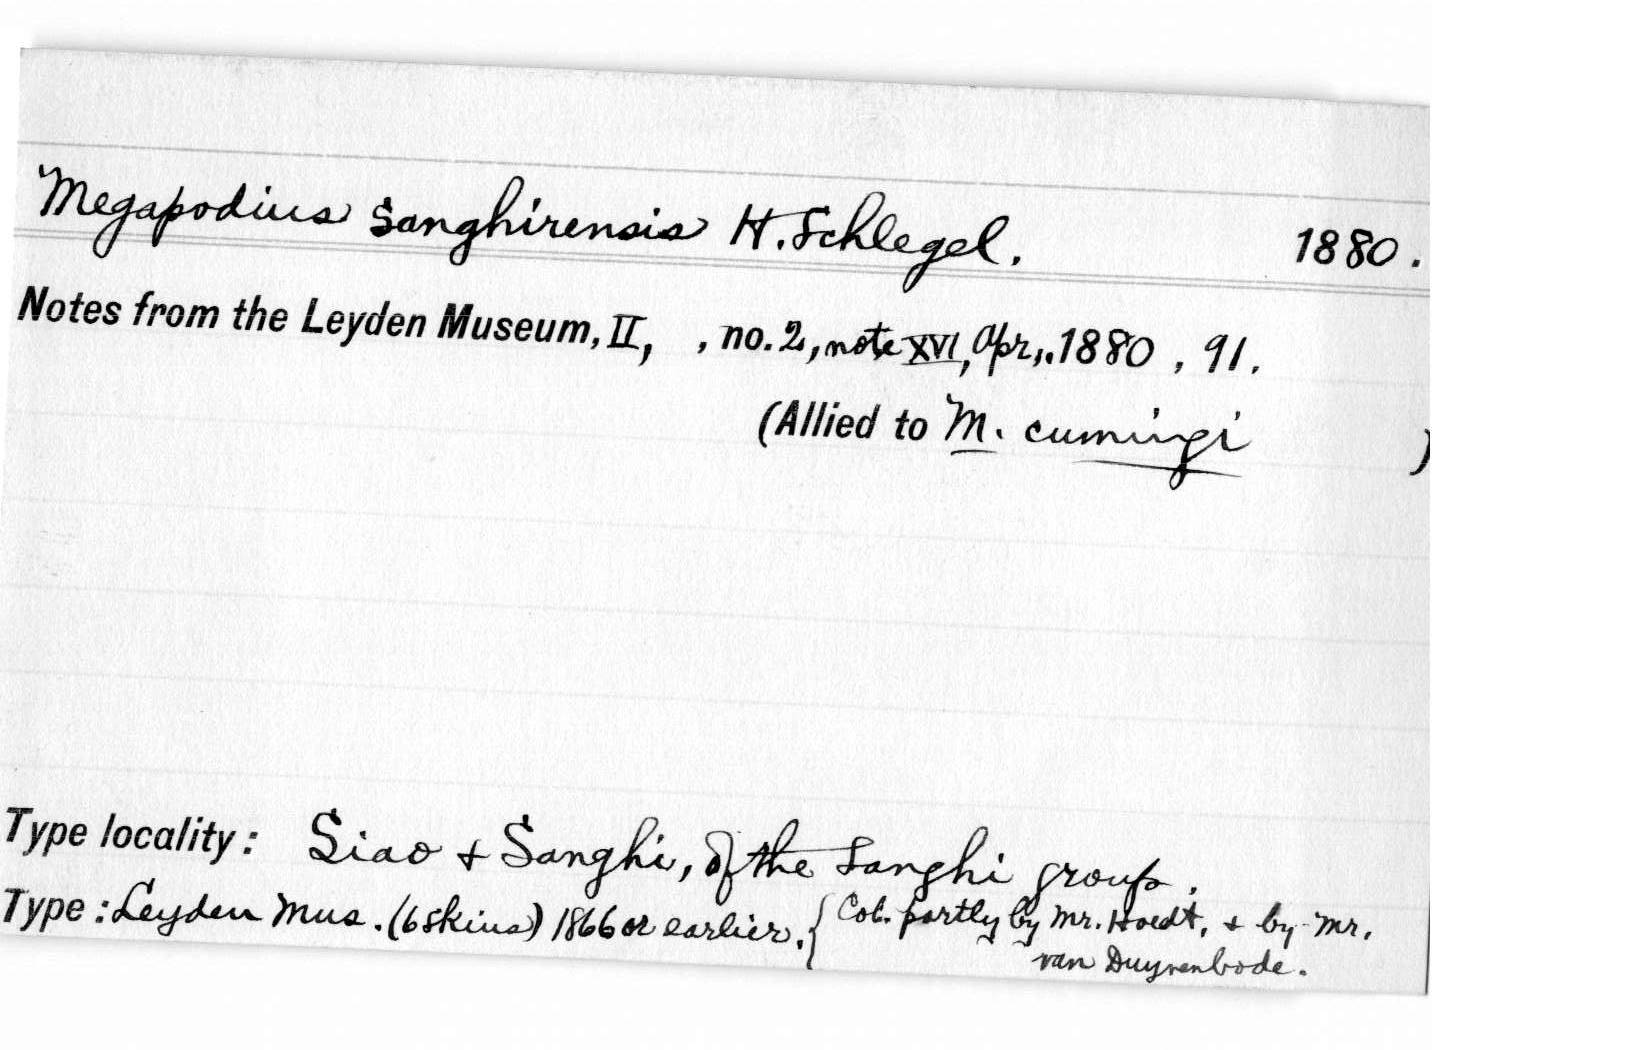 Megapodius sanghirensis H. Schlegel. 1880.
Notes from the Leyden Museum, II, , no. 2, note XVI, Apr., 1880, 91.
(Allied to M. cumingi )
Type locality: Siao + Sanghi, of the Sanghi group.
Type: Leyden Mus. (6 skins) 1866 or earlier. { Col. partly by Mr. Hoedt, + by Mr.
van Duyvenbode.